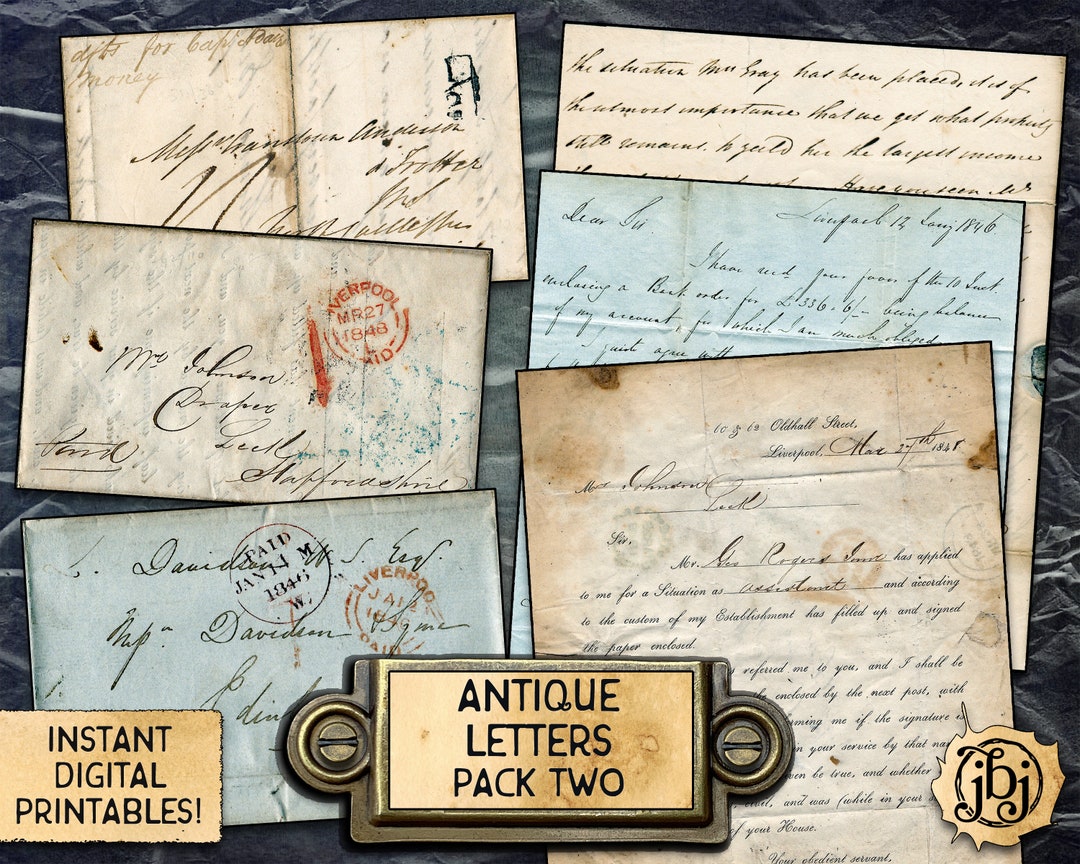 dfts for Cap
money
Mess.rs
Anderson
& Trotter
the situation Mrs Gray has been placed, it is of
the utmost importance that we get what
still remains to yield her the largest income
Have you seen Mr
Dear Sir.
Liverpool 12 Jany 1846
I have recd your favor of the 10 Inst
enclosing a Bank order for £336.6/- being balance
of my account, for which I am much obliged
I quite agree with
LIVERPOOL
MR27
1848
PAID
1
Mr. Johnson
Draper
Leek
Staffordshire
Paid
60 & 62 Oldhall Street,
Liverpool, Mar 27th 1848
Mr. Johnson
Leek
Sir,
Mr. Geo Rogers has applied
to me for a Situation as assistant and according
to the custom of my Establishment has filled up and signed
the paper enclosed.
referred me to you, and I shall be
the enclosed by the next post, with
me if the signature is
in your service by that
be true, and whether
and was (while in your
of your House.
Your obedient servant,
PAID
JAN 14 M
1846
W.
LIVERPOO
JA12
PAID
Davidson W.S. Esqr.
Davidson & Syme
Edin
ANTIQUE
LETTERS
PACK TWO
INSTANT
DIGITAL
PRINTABLES!
jbj